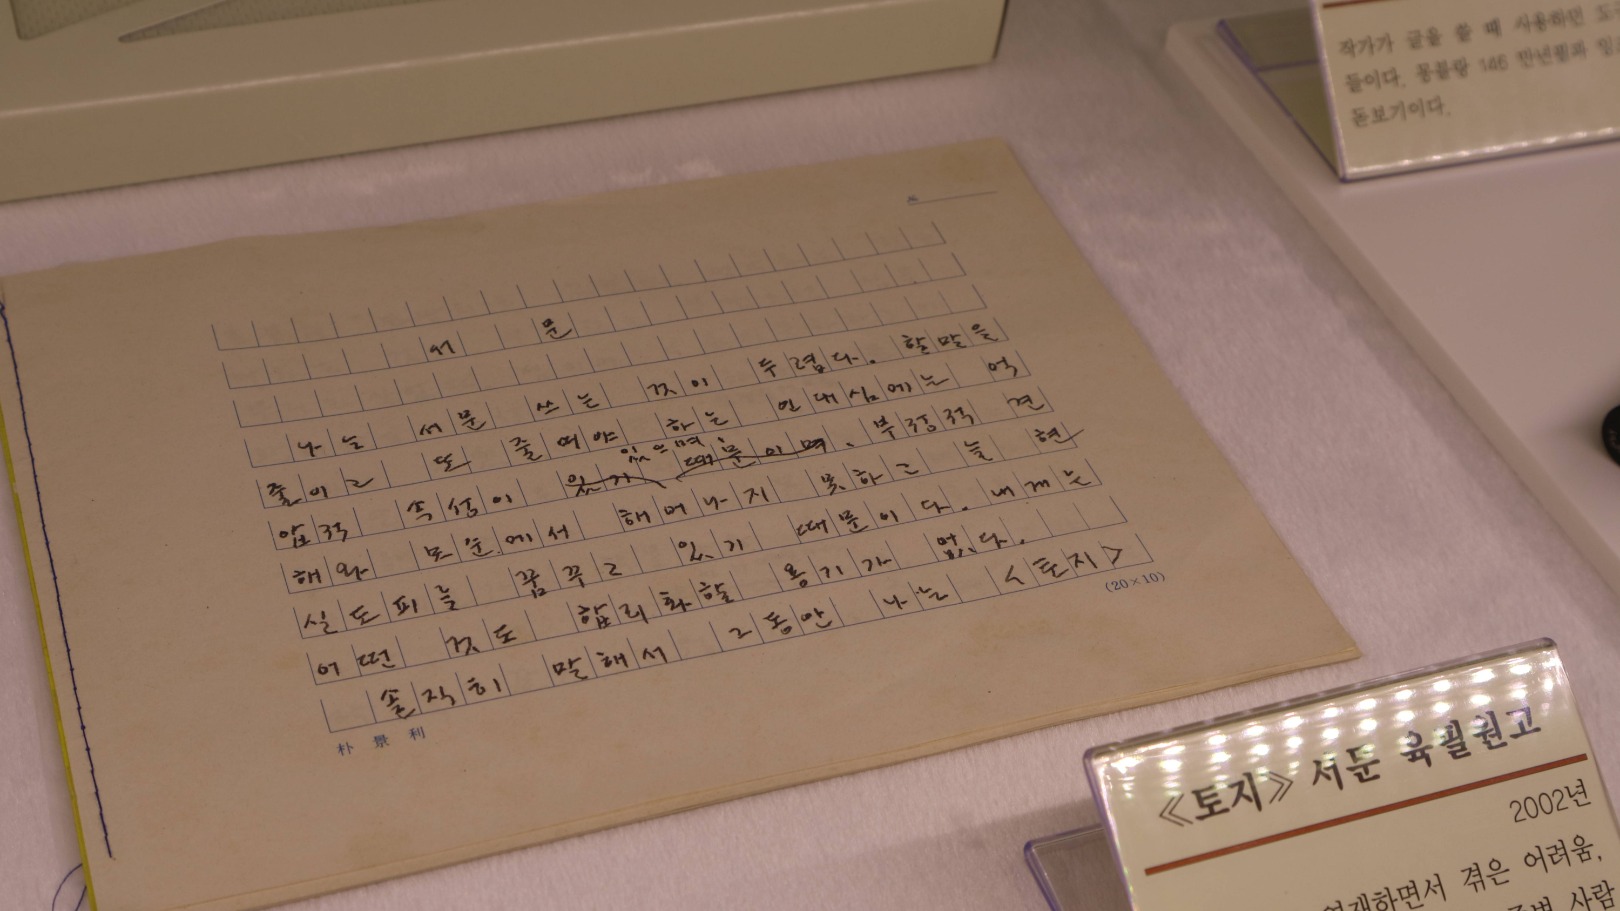 작가가 글을 쓸 때 사용하던
들이다. 몽블랑 146 만년필과
돋보기이다.
서 문
나는 서문 쓰는 것이 두렵다. 할말을
줄이고 또 줄여야 하는 인내심에는 억
있으며,
압적 속성이 있기 때문이며. 부정적 견
해와 모순에서 헤어나지 못하고 늘 현
실도피를 꿈꾸고 있기 때문이다. 내게는
어떤 것도 합리화할 용기가 없다.
솔직히 말해서 그동안 나는 <토지>
(20×10)
朴景利
《토지》 서문 육필원고
2002년
연재하면서 겪은 어려움,
사람